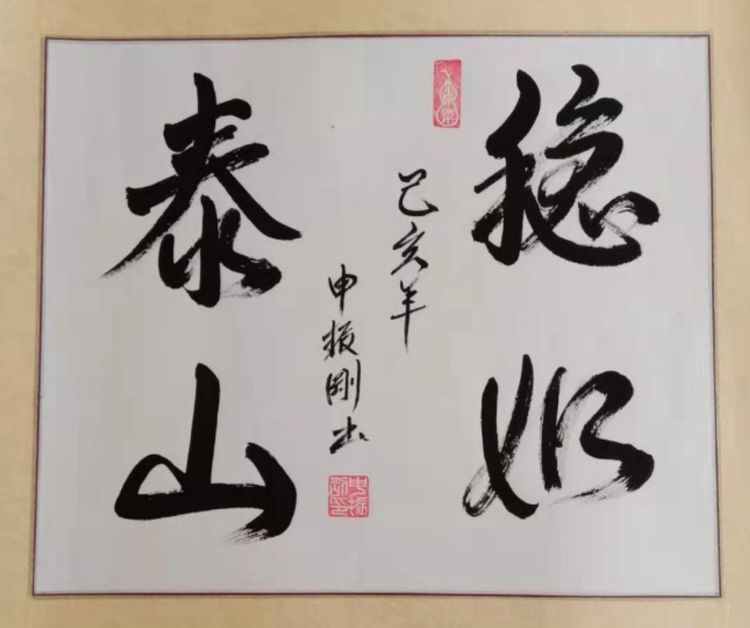 稳如
泰山
己亥年
申振刚书